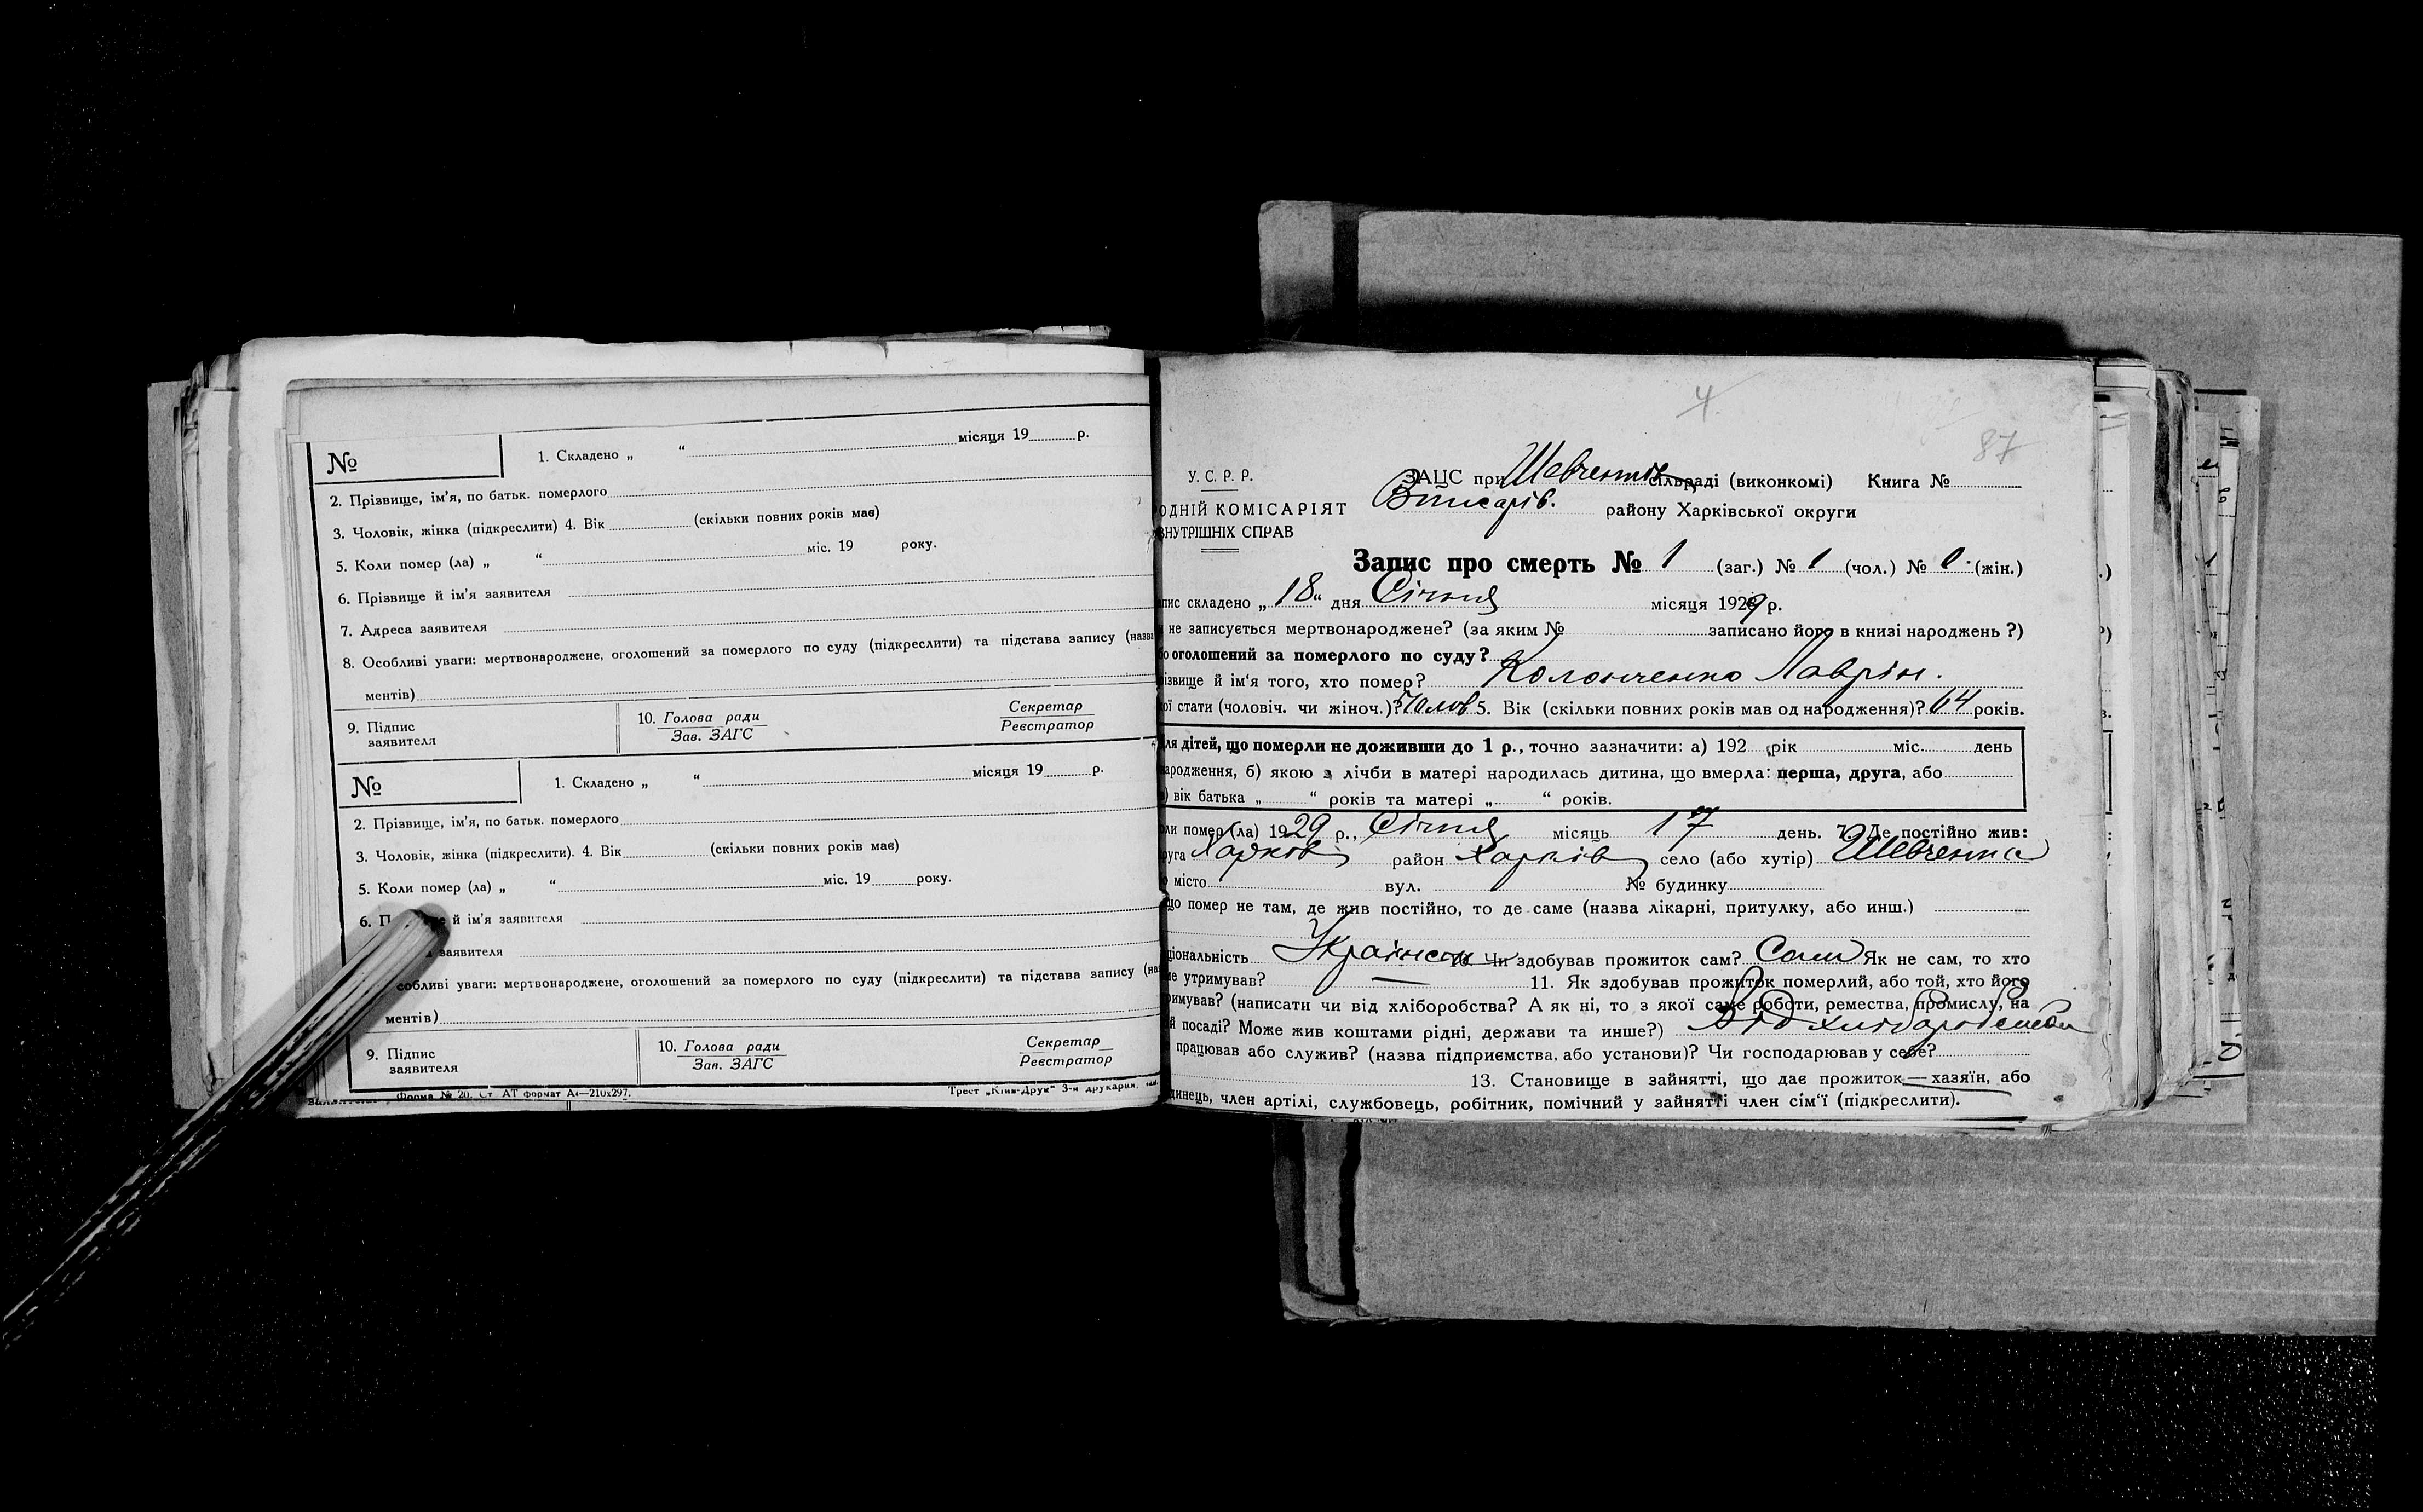 №
1. Складено „ “ місяця 19 р.
2. Прізвище, ім'я, по батьк. померлого
3. Чоловік, жінка (підкреслити) 4. Вік (скільки повних років має)
5. Коли помер (ла) „ “ міс. 19 року.
6. Прізвище й ім'я заявителя
7. Адреса заявителя
8. Особливі уваги: мертвонароджене, оголошений за померлого по суду (підкреслити) та підстава запису (назва
ментів)
9. Підпис заявителя
10. Голова ради
Зав. ЗАГС
Секретар
Реєстратор
№
1. Складено „ “ місяця 19 р.
2. Прізвище, ім'я, по батьк. померлого
3. Чоловік, жінка (підкреслити). 4. Вік (скільки повних років має)
5. Коли помер (ла) „ “ міс. 19 року.
6. П й ім'я заявителя
заявителя
собливі уваги: мертвонароджене, оголошений за померлого по суду (підкреслити) та підстава запису (на
ментів)
9. Підпис заявителя
10. Голова ради
Зав. ЗАГС
Секретар
Реєстратор
Форма № 20. Ст. АТ формат А4—210х297.
Трест „Київ-Друк“ 3-я друкарня.
4
87
У. С. Р. Р.
ОДНІЙ КОМІСАРІЯТ
ВНУТРІШНІХ СПРАВ
ЗАЦС при Шевченків сільраді (виконкомі) Книга №
району Харківської округи
Запис про смерть № 1 (заг.) № 1 (чол.) № (жін.)
пис складено „ 18 “ дня Січня місяця 1929 р.
не записується мертвонароджене? (за яким № записано його в книзі народжень ?)
бо оголошений за померлого по суду?
різвище й ім'я того, хто помер? Лаврін.
ої стати (чоловіч. чи жіноч.)? Чолов 5. Вік (скільки повних років мав од народження)? 64 років.
ля дітей, що померли не доживши до 1 р., точно зазначити: а) 192 рік міс. день
ародження, б) якою з лічби в матері народилась дитина, що вмерла: перша, друга, або
) вік батька „ “ років та матері „ “ років.
ли помер (ла) 1929 р., Січня місяць 17 день. 7. Де постійно жив:
руга Харків район Харків село (або хутір) Шевченка
місто вул. № будинку
що помер не там, де жив постійно, то де саме (назва лікарні, притулку, або инш.)
ціональність Українец 10. Чи здобував прожиток сам? Сам Як не сам, то хто
не утримував? — 11. Як здобував прожиток померлий, або той, хто його
римував? (написати чи від хліборобства? А як ні, то з якої саме роботи, ремества, промислу, на
й посаді? Може жив коштами рідні, держави та инше?) Від хліборобства
працював або служив? (назва підприємства, або установи)? Чи господарював у себе?
13. Становище в зайнятті, що дає прожиток — хазяїн, або
динець, член артілі, службовець, робітник, помічний у зайнятті член сім'ї (підкреслити).